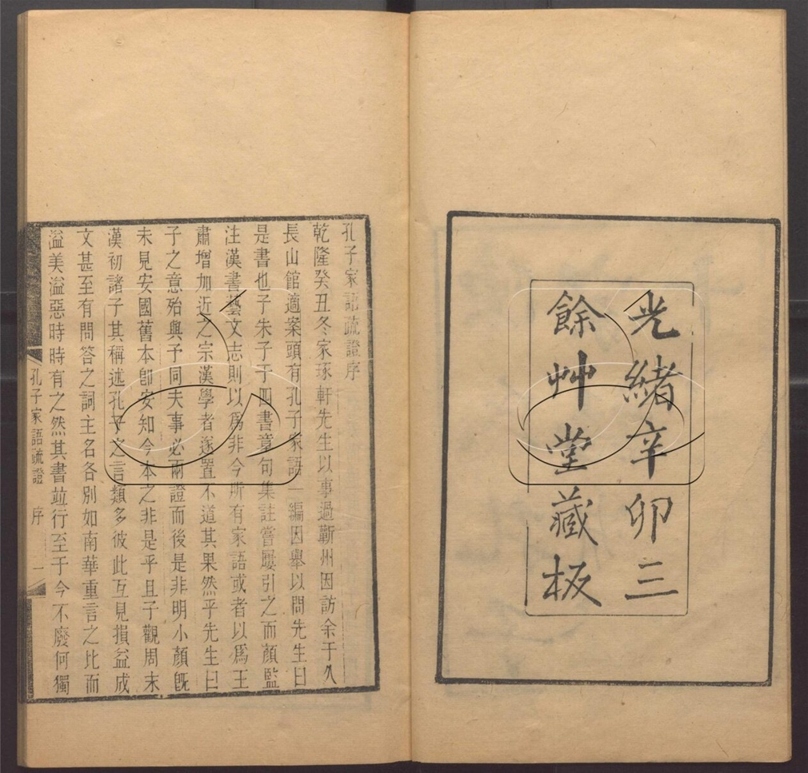 光緒辛卯三
餘艸堂藏板
孔子家語疏證序
乾隆癸丑冬家琢軒先生以事過蘄州因訪余于久
長山館適案頭有孔子家語一編因舉以問先生曰
是書也子朱子于四書章句集註嘗屢引之而顏監
注漢書藝文志則以爲非今所有家語或者以爲王
肅增加近之宗漢學者遂置不道其果然乎先生曰
子之意殆與予同夫事必兩證而後是非明小顏旣
未見安國舊本卽安知今本之非是乎且予觀周末
漢初諸子其稱述孔子之言類多彼此互見損益成
文甚至有問答之詞主名各別如南華重言之比而
溢美溢惡時時有之然其書竝行至于今不廢何獨
孔子家語疏證 序 一